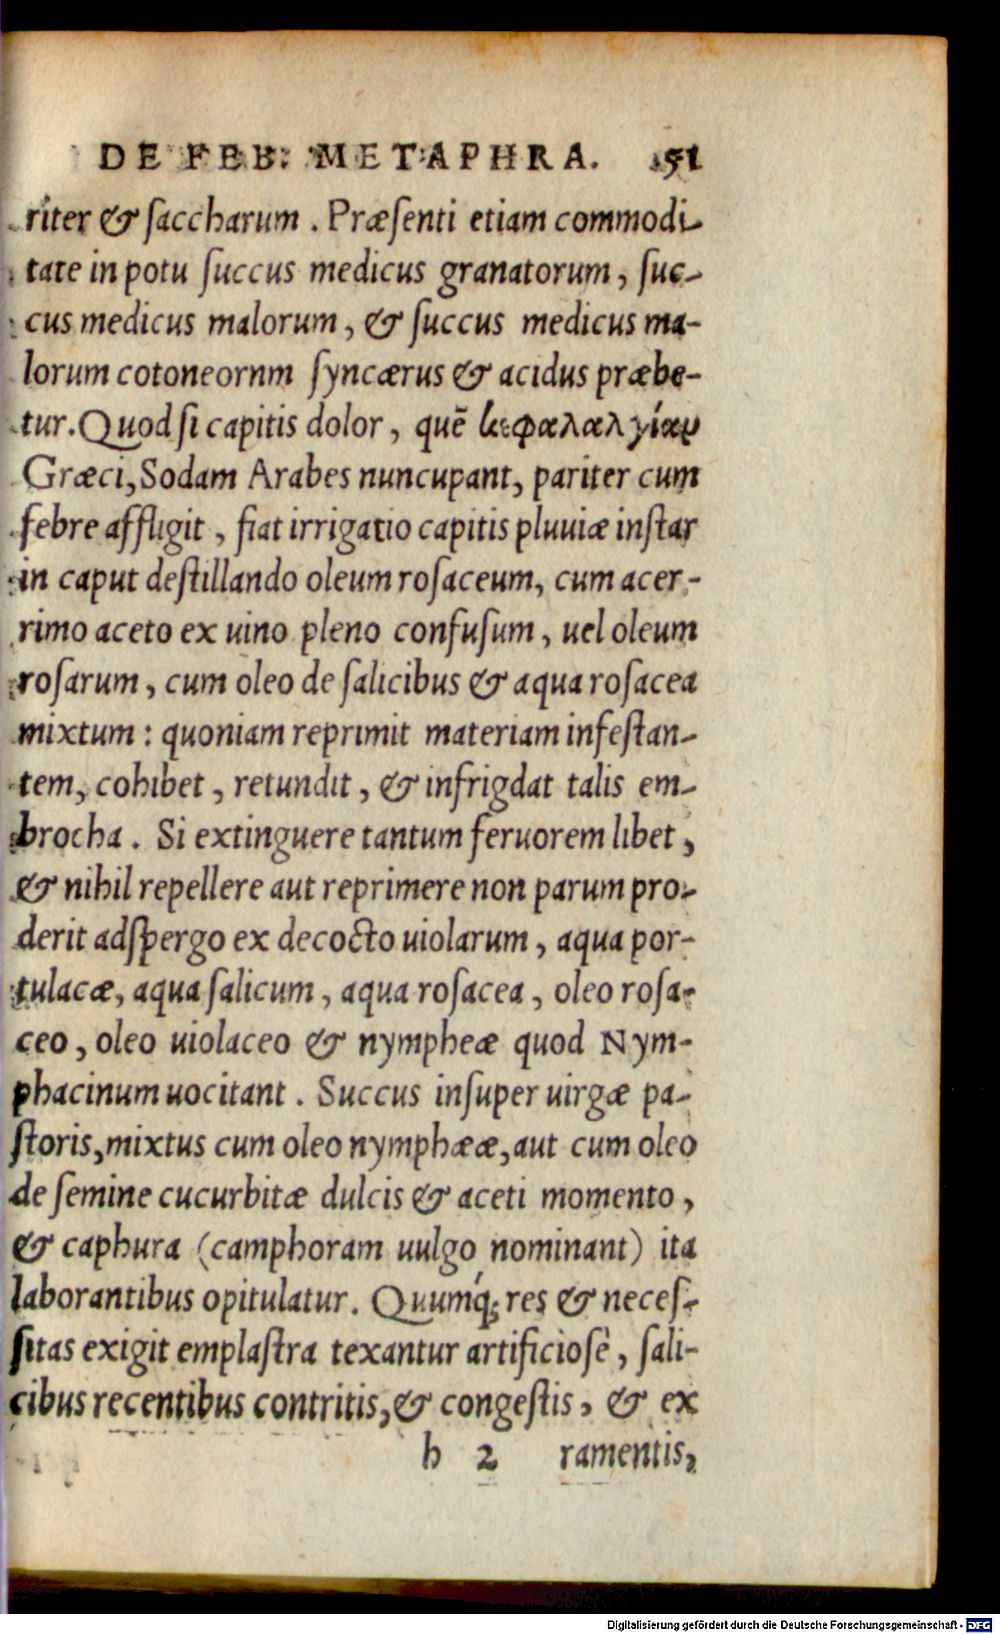 DE FEB. METAPHRA. 51
riter & saccharum . Præsenti etiam commodi-
tate in potu succus medicus granatorum, suc-
cus medicus malorum, & succus medicus ma-
lorum cotoneornm syncærus & acidus præbe-
tur. Quod si capitis dolor, quē κεφαλαλγίαν
Græci, Sodam Arabes nuncupant, pariter cum
febre affligit, fiat irrigatio capitis pluuiæ instar
in caput destillando oleum rosaceum, cum acer-
rimo aceto ex uino pleno confusum, uel oleum
rosarum, cum oleo de salicibus & aqua rosacea
mixtum : quoniam reprimit materiam infestan-
tem, cohibet, retundit, & infrigdat talis em-
brocha. Si extinguere tantum feruorem libet,
& nihil repellere aut reprimere non parum pro-
derit adspergo ex decocto uiolarum, aqua por-
tulacæ, aqua salicum, aqua rosacea, oleo rosa-
ceo, oleo uiolaceo & nympheæ quod Nym-
phacinum uocitant. Succus insuper uirgæ pa-
storis, mixtus cum oleo nymphææ, aut cum oleo
de semine cucurbitæ dulcis & aceti momento,
& caphura (camphoram uulgo nominant) ita
laborantibus opitulatur. Quumq́; res & neces-
sitas exigit emplastra texantur artificiosè, sali-
cibus recentibus contritis, & congestis, & ex
h 2 ramentis,
Digitalisierung gefördert durch die Deutsche Forschungsgemeinschaft - DFG